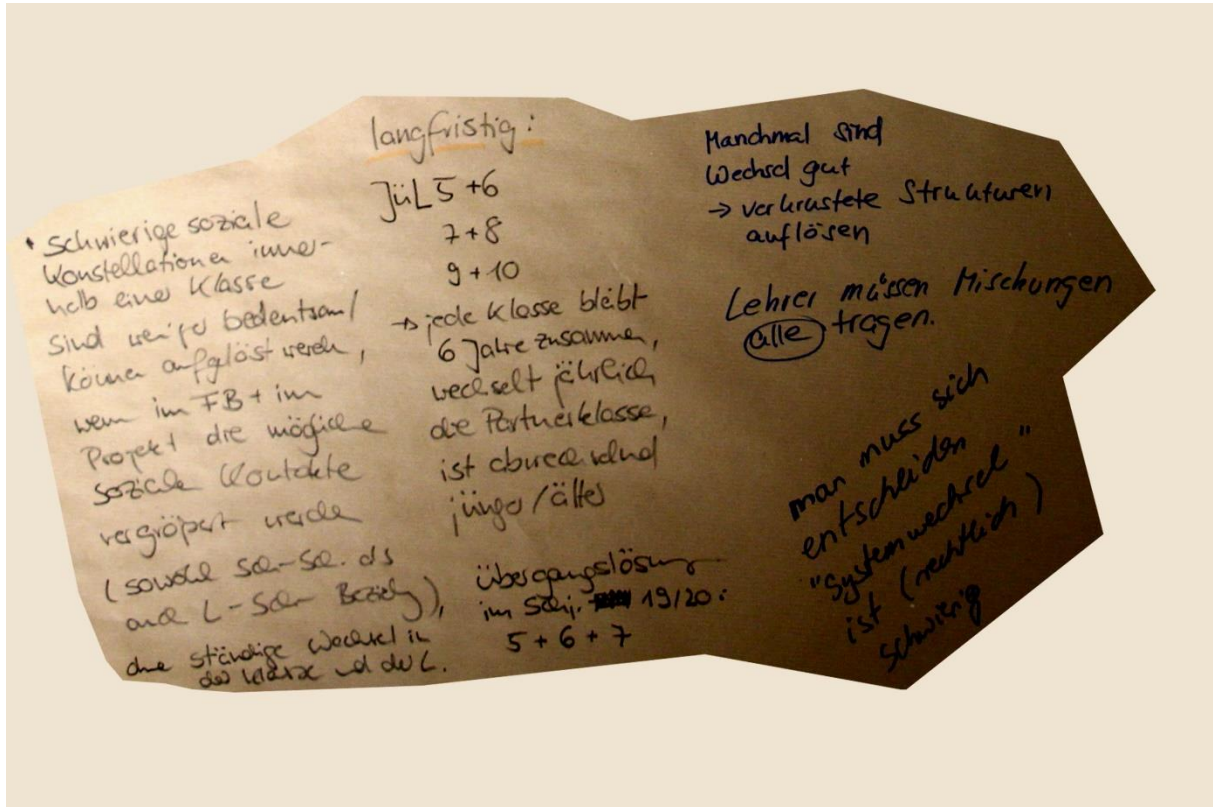 langfristig:
• Schwierige soziale
Konstellationen inner-
halb einer Klasse
sind weniger bedeutsam/
können aufgelöst werden,
wenn im FB + im
Projekt die mögliche
soziale Kontakte
vergrößert werde
(sowohl Sch-Sch. als
auch L-Sch Bezieh),
ohne ständige Wechsel in
der Klasse und der L.
JüL 5 + 6
7 + 8
9 + 10
→ jede Klasse bleibt
6 Jahre zusammen,
wechselt jährlich
die Partnerklasse,
ist abwechselnd
jünger/älter
übergangslösung
im Schj. 19/20:
5 + 6 + 7
Manchmal sind
Wechsel gut
→ verkrustete Strukturen
auflösen
Lehrer müssen Mischungen
alle tragen.
man muss sich
entscheiden
"Systemwechsel"
ist (rechtlich)
schwierig